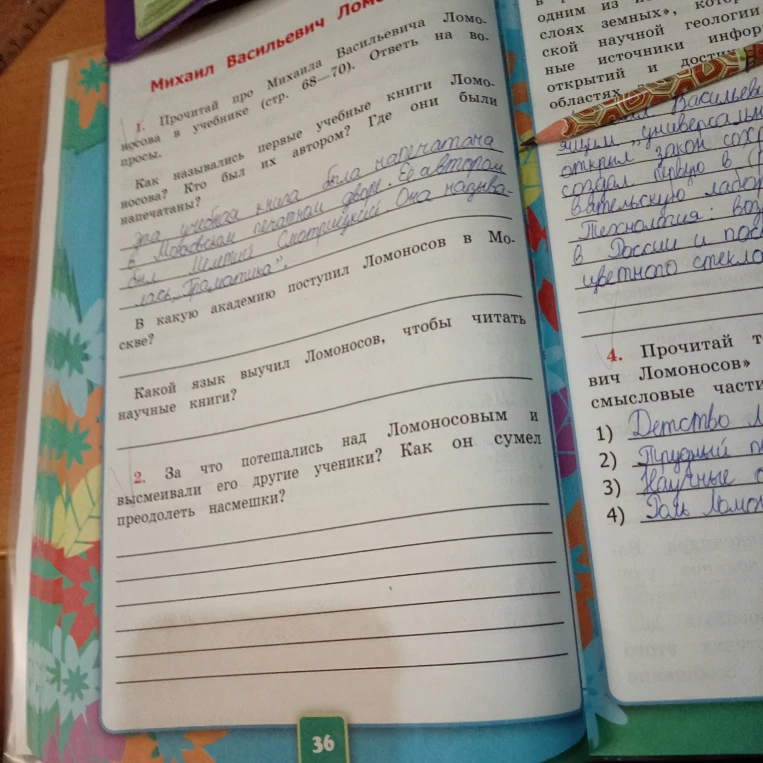 Михаил Васильевич
1. Прочитай про Михаила Васильевича Ломо-
носова в учебнике (стр. 68—70). Ответь на во-
просы.
Как назывались первые учебные книги Ломо-
носова? Кто был их автором? Где они были
напечатаны?
эта учебная книга была напечатана
в Московском печатном дворе. Её автором
был Мелетий Смотрицкий. Она называ-
лась „Граматика".
В какую академию поступил Ломоносов в Мо-
скве?
Какой язык выучил Ломоносов, чтобы читать
научные книги?
2. За что потешались над Ломоносовым и
высмеивали его другие ученики? Как он сумел
преодолеть насмешки?
36
одним из
слоях земных»,
ской научной геологии
ные источники
открытий и
областях
Васильеви
открыл закон
создал первую в
Технология:
в России и
цветного
4. Прочитай
вич Ломоносов»
смысловые
1) Детство
2) Трудный
3) Научные
4) Роль